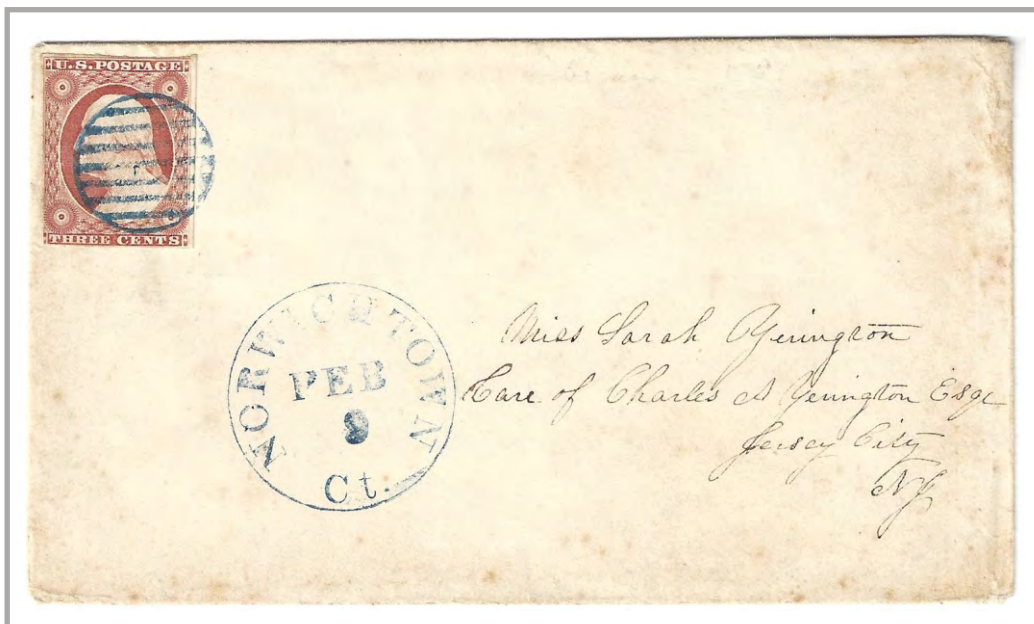 U.S. POSTAGE
THREE CENTS
NORWICHTOWN
FEB
9
Ct.
Miss Sarah Yerington
Care of Charles A Yerington Esqr
Jersey City
NJ